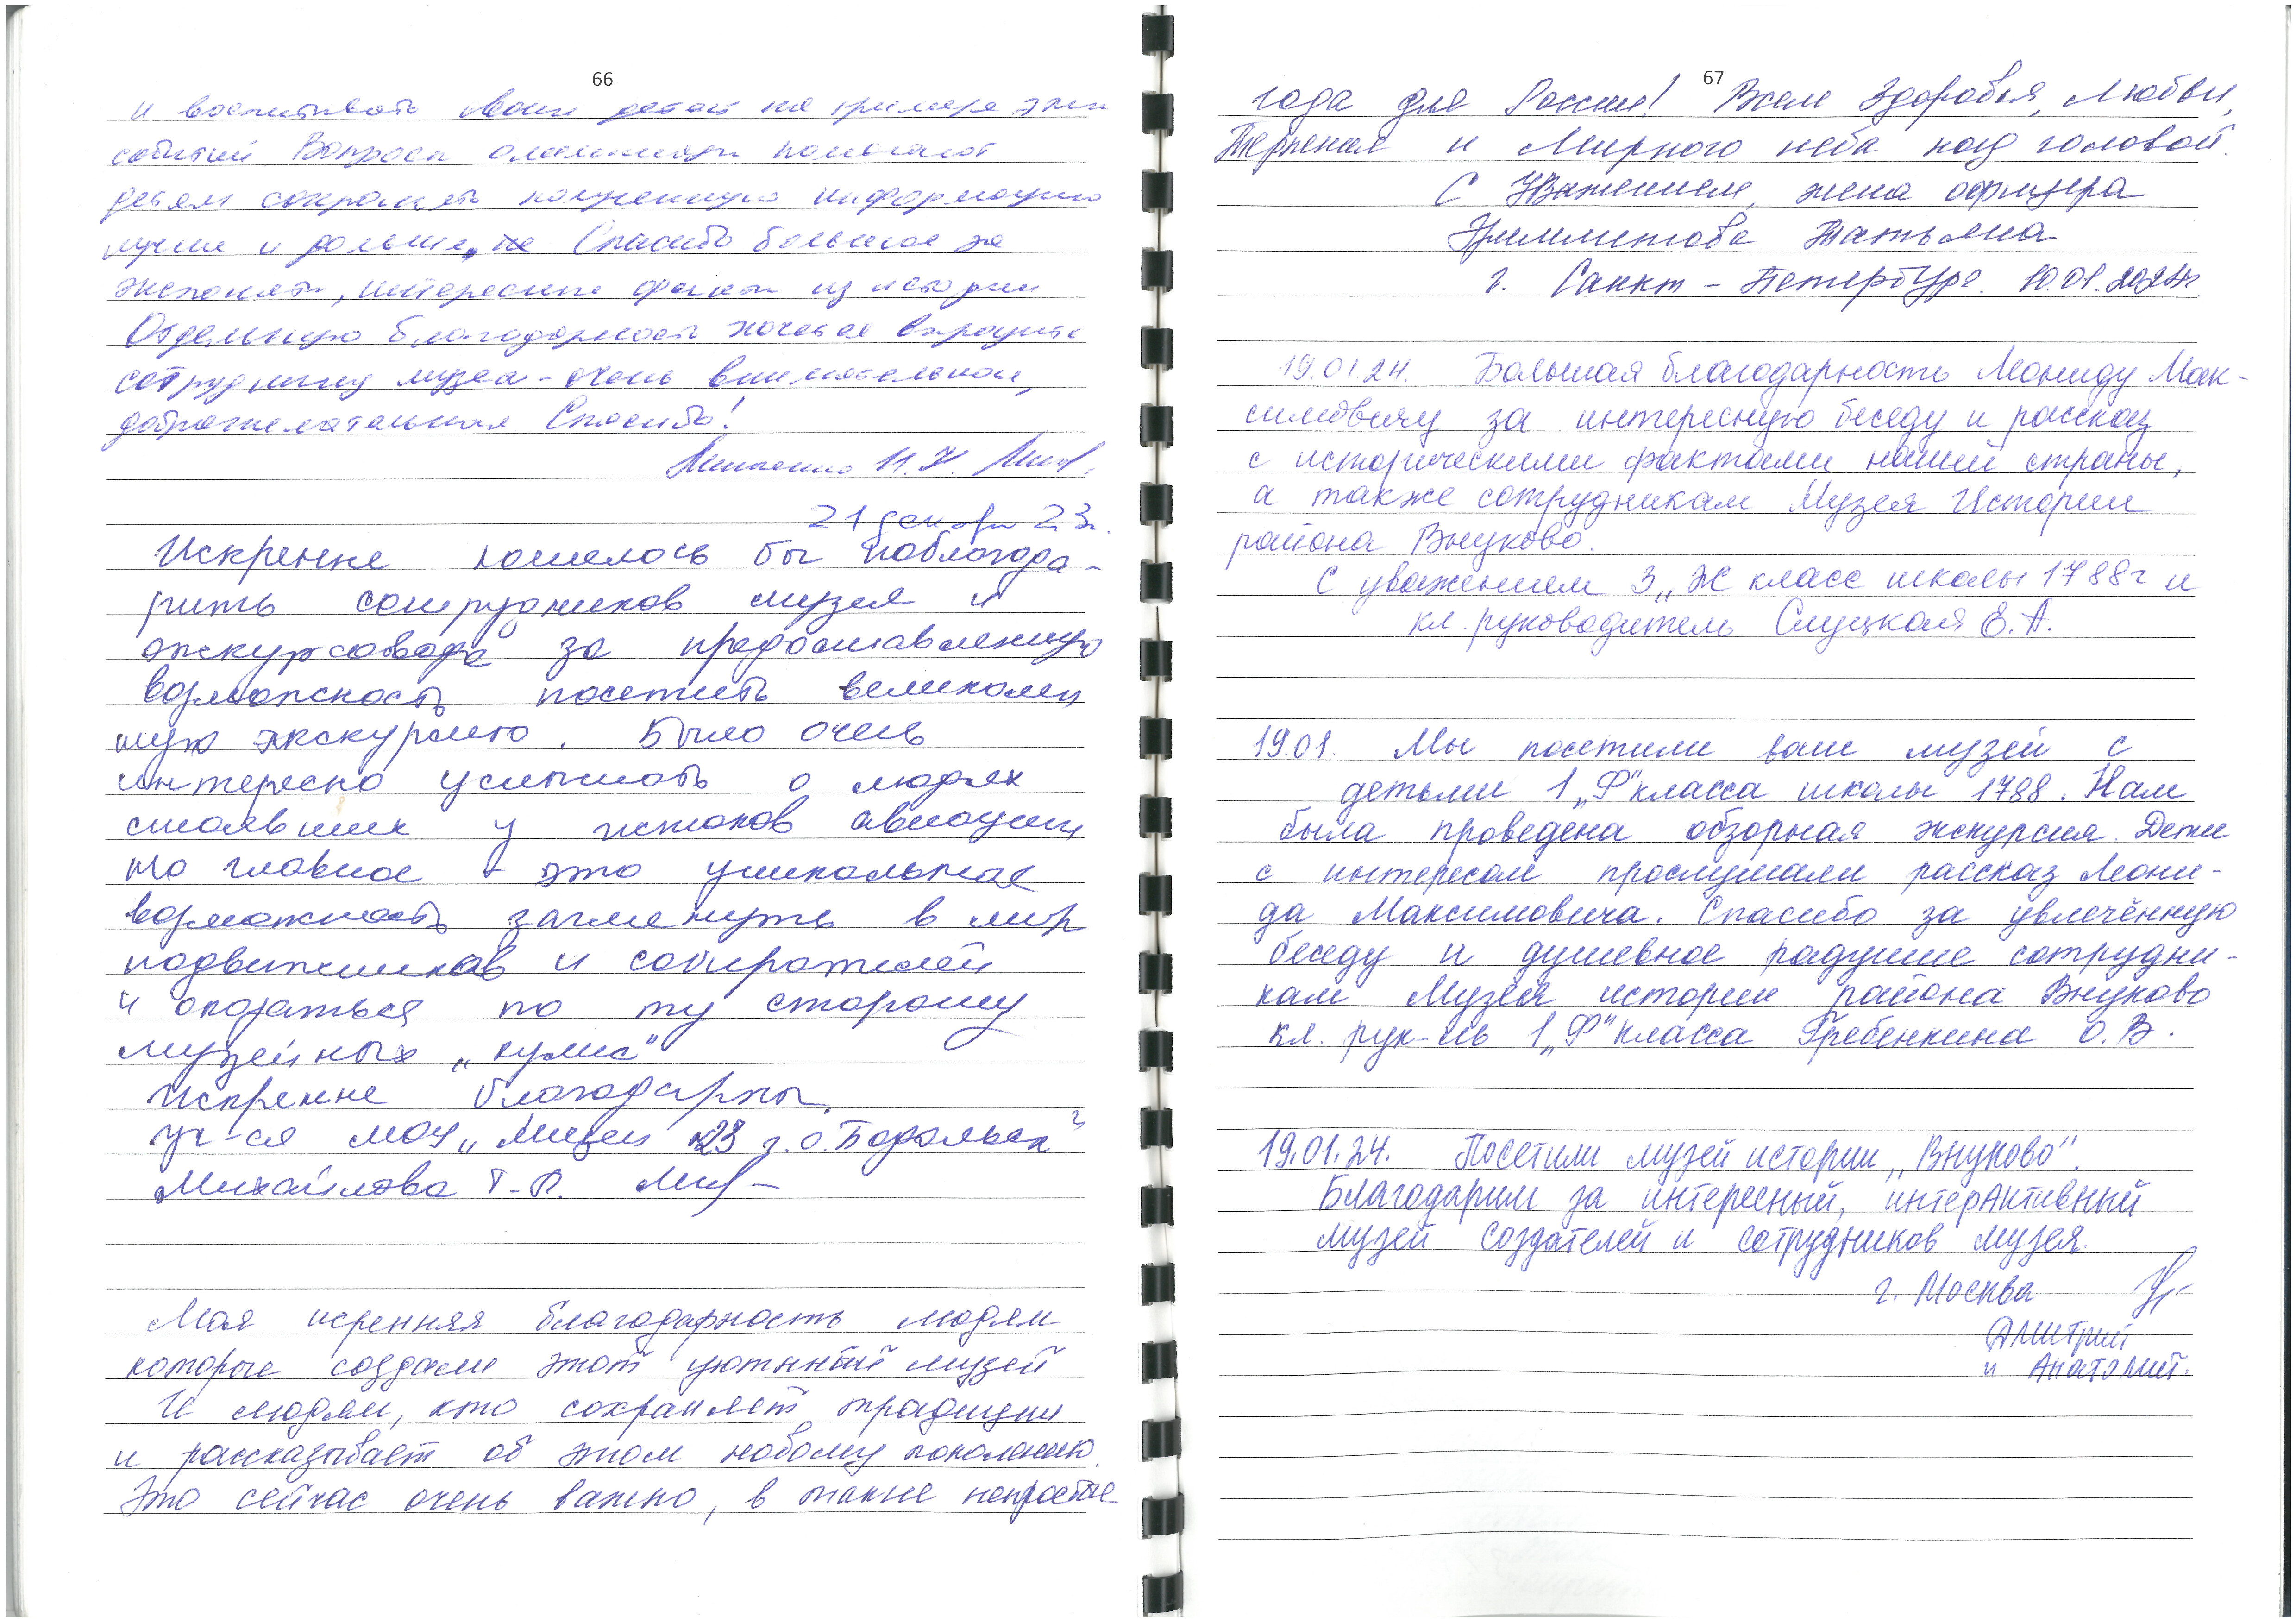 66
и воспитывать своих детей на примере этих
событий Вопросы олимпиады помогают
детям сохранять полученную информацию
лучше и дольше. Спасибо большое за
экспонаты, интересные факты из истории
Отдельную благодарность хочется выразить
сотруднику музея - очень внимательная,
доброжелательная Спасибо!
Н.
21 декабря 23г.
Искренне хотелось бы поблагода-
рить сотрудников музея и
экскурсовода за предоставленную
возможность посетить великолеп
ную экскурсию. Было очень
интересно услышать о людях
стоявших у истоков авиации
но главное - это уникальная
возможность заглянуть в мир
подвижников и собирателей
и оказаться по ту сторону
музейных „кулис"
Искренне благодарны
уч-ся МОУ „Лицей №23 г.о. Подольск"
Михайлова Т.П.
Моя исренняя благодарность людям
которые создали этот уютнный музей
И людям, кто сохраняет традиции
и рассказывает об этом новому поколению.
Это сейчас очень важно, в такие непростые
67
года для России! Всем Здоровья, Любви,
Терпения и Мирного неба над головой.
С Уважением, жена офицера
Татьяна
г. Санкт - Петербург. 10.01.2024г.
19.01 24. Большая благодарность Леониду Мак-
симовичу за интересную беседу и рассказ
с историческими фактами нашей страны,
а также сотрудникам Музея Истории
района Внуково.
С уважением 3 „Ж класс школы 1788 и
кл. руководитель Слуцкая Е.А.
19.01. Мы посетили ваш музей с
детьми 1 „Ф" класса школы 1788. Нам
была проведена обзорная экскурсия. Дети
с интересом прослушали рассказ Леони-
да Максимовича. Спасибо за увлечённую
беседу и душевное радушие сотрудни-
кам Музея истории района Внуково
кл. рук-ль 1 „Ф" класса Гребенкина О.В.
19.01.24. Посетили музей истории „Внуково".
Благодарим за интересный, интерактивный
музей создателей и сотрудников музея.
г. Москва
Дмитрий
и Анатолий.